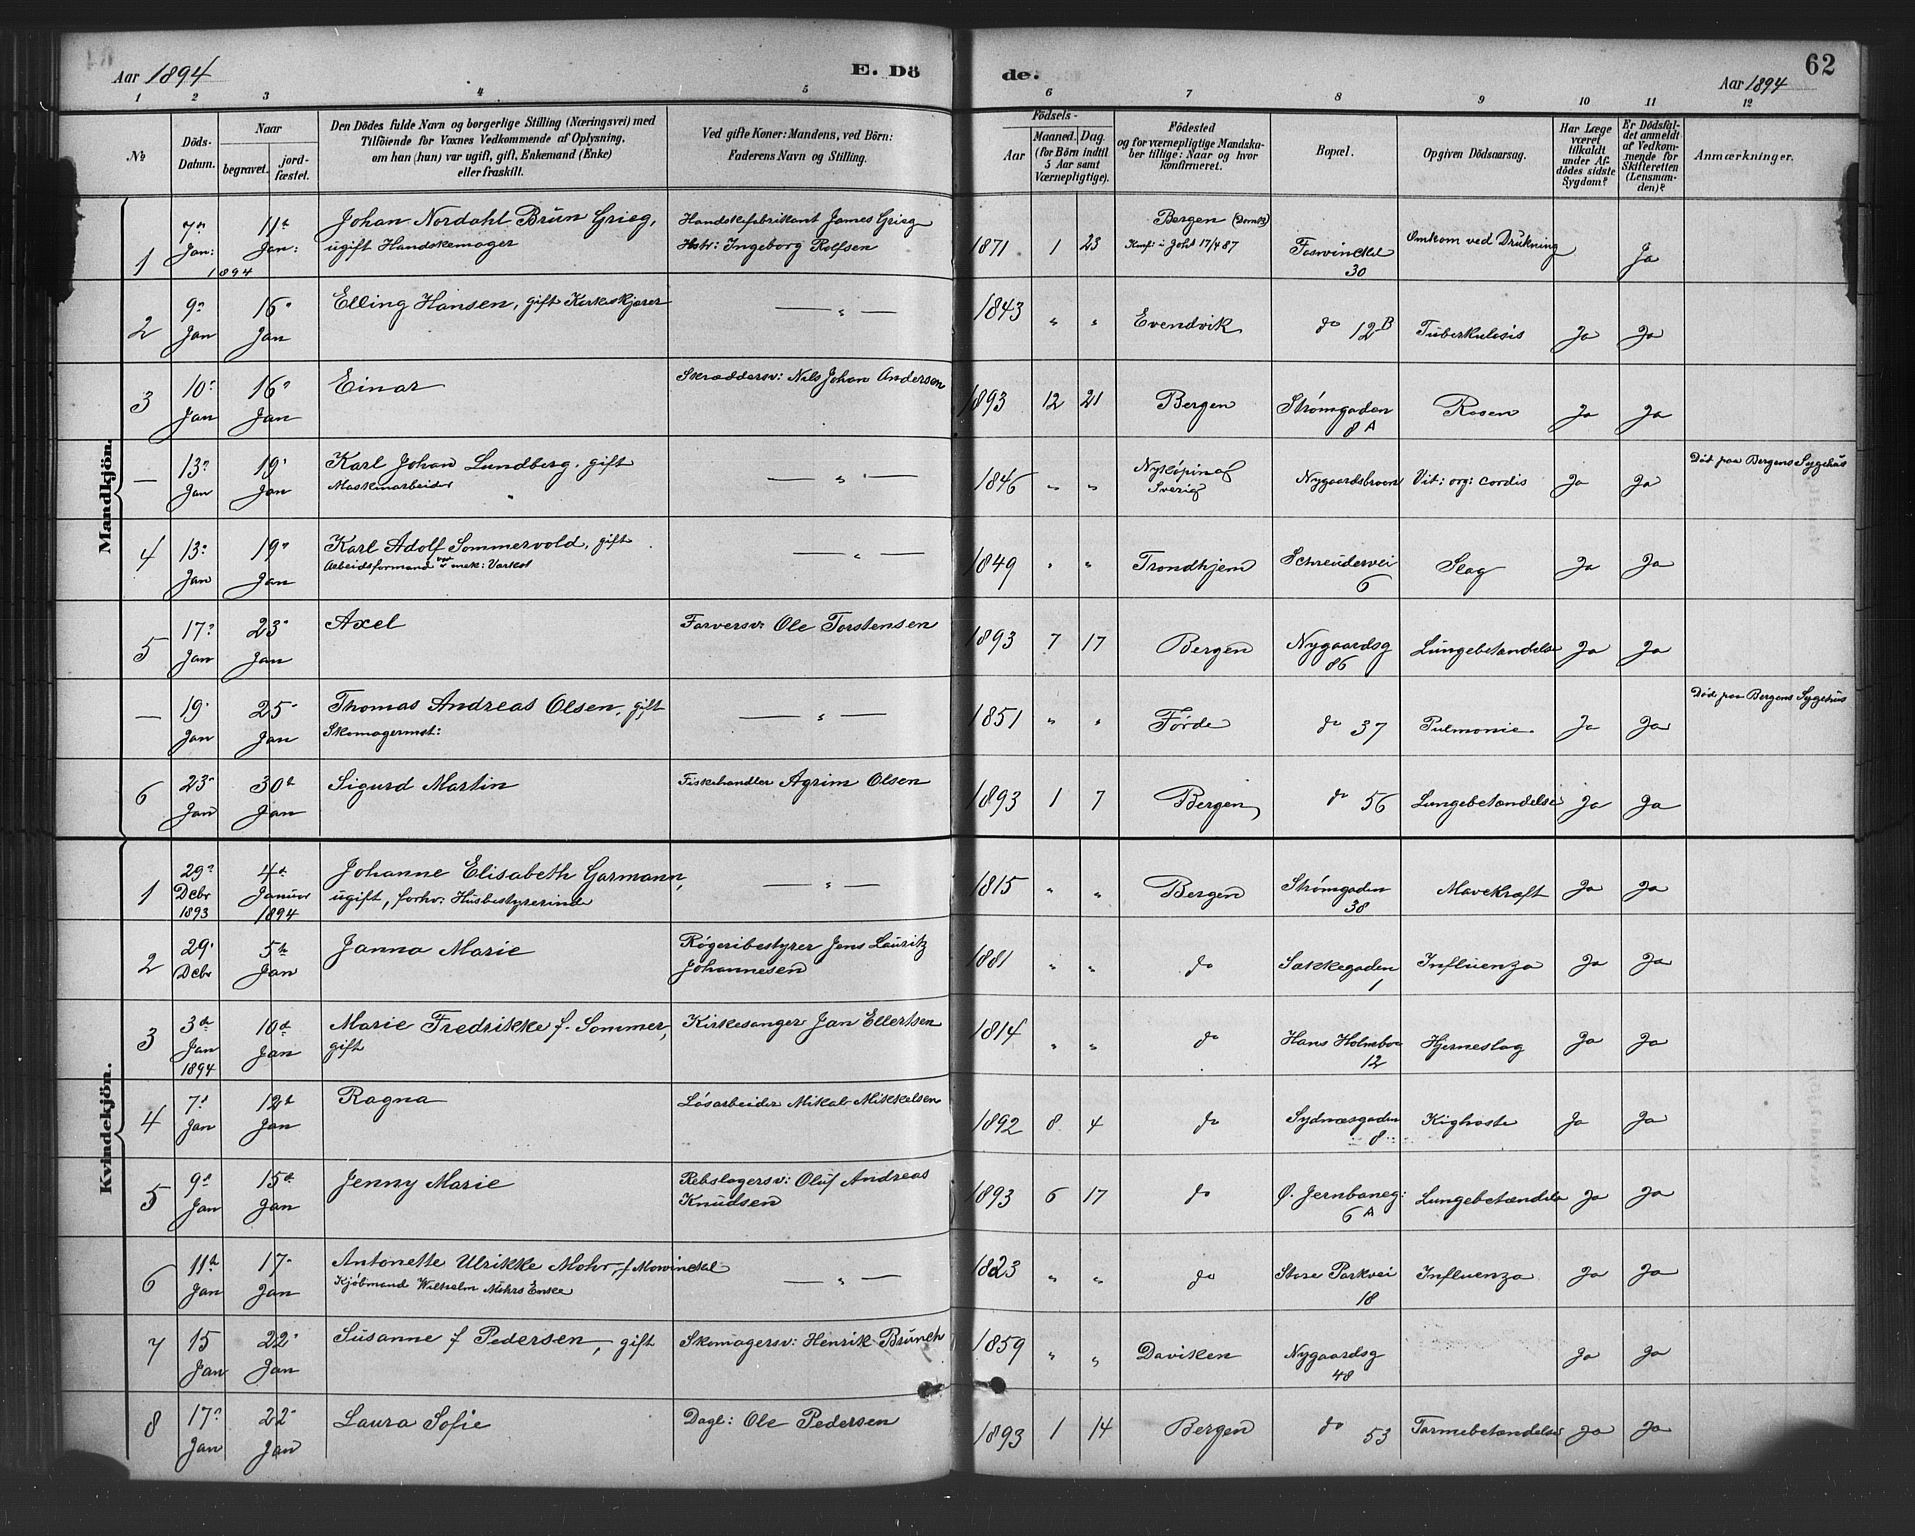 Aar 1894
E. Dö
de.
Aar 1894
62
1 2 3 4 5 6 7 8 9 10 11 12
№
Döds-
Datum.
Naar
begravet. jord-
fæstet.
Den Dödes fulde Navn og borgerlige Stilling (Næringsvei) med
Tilföiende for Voxnes Vedkommende af Oplysning,
om han (hun) var ugift, gift, Enkemand (Enke)
eller fraskilt.
Ved gifte Koner: Mandens, ved Börn:
Faderens Navn og Stilling.
Födsels-
Aar
Maaned. Dag.
(for Börn indtil
5 Aar samt
Værnepligtige).
Födested
og for værnepligtige Mandska-
ber tillige: Naar og hvor
konfirmeret.
Bopæl.
Opgiven Dödsaarsag.
Har Læge
været
tilkaldt
under Af-
dödes sidste
Sygdom?
Er Dödsfal-
det anmeldt
af Vedkom-
mende for
Skifteretten
(Lensman-
den)?
Anmærkninger.
Mandkjön.
1 7de Jan: 1894 11te Jan: Johan Nordahl Brun Grieg, Handskefabrikant James Grieg 1871 1 23 Bergen (Domk) Foswinckel Omkom ved Drukning Ja
ugift Handskemager Hstr: Ingeborg Rolfsen Konf: i Joht 17/4 87 30
2 9de Jan 16de Jan Elling Hansen, gift Kirkeskjærer — " — 1843 " " Evendvik do 12 B Tuberkulosis Ja Ja
3 10de Jan 16de Jan Einar Skræddersv: Nils Johan Andersen 1893 12 21 Bergen Strømgaden Rosen Ja Ja
8 A
— 13de Jan 19de Jan Karl Johan Lundberg, gift — " — 1846 " " Nykøping Nygaardsbroen Vit: org: cordis Ja Ja Død paa Bergens Sygehus
Maskinarbeider Sverig
4 13de Jan 19de Jan Karl Adolf Sommervold, gift — " — 1849 " " Trondhjem Schreudervei Slag Ja Ja
Arbeidsformand ved mek: Værkst 6
5 17de Jan 23de Jan Axel Farversv: Ole Torstensen 1893 7 17 Bergen Nygaardsg Lungebetændelse Ja Ja
86
— 19de Jan 25de Jan Thomas Andreas Olsen, gift — " — 1851 " " Førde do 37 Pulmonie. Ja Ja Død paa Bergens Sygehus
Skomagermst:
6 23de Jan 30te Jan Sigurd Martin Fiskehandler Agrim Olsen 1893 1 7 Bergen do 56 Lungebetændelse Ja Ja
Kvindekjön.
1 29de Debr 1893 4de Januar 1894 Johanne Elisabeth Garmann, — " — 1815 " " Bergen Strømgaden Mavekræft Ja Ja
ugift, forhv: Husbestyrerinde 38
2 29de Debr 5te Jan Janna Marie Røgeribestyrer Jens Lauritz 1881 " " do Sækkegaden Influenza Ja Ja
Johannesen 1
3 3de Jan 1894 10de Jan Marie Fredrikke f. Sommer, Kirkesanger Jan Ellertsen 1814 " " do Hans Holmboe Hjerneslag Ja Ja
gift 12
4 7de Jan 12te Jan Ragna Løsarbeider Mikal Mikkelsen 1892 8 4 do Sydnæsgaden Kighoste Ja Ja
8
5 9de Jan 15de Jan Jenny Marie Rebslagersv: Oluf Andreas 1893 6 17 do Ø. Jernbaneg: Lungebetændelse Ja Ja
Knudsen 6 A
6 11te Jan 17de Jan Antonette Ulrikke Mohr, f Mowinckel — " — 1823 " " do Store Parkvei Influenza Ja Ja
Kjøbmand Wilhelm Mohrs Enke 18
7 15 Jan 22de Jan Susanne f Pedersen, gift Skomagersv: Henrik Brunch 1859 " " Daviken Nygaardsg Ja Ja
48
8 17de Jan 22de Jan Laura Sofie Dagl: Ole Pedersen 1893 1 14 Bergen do 53 Tarmebetændelse Ja Ja